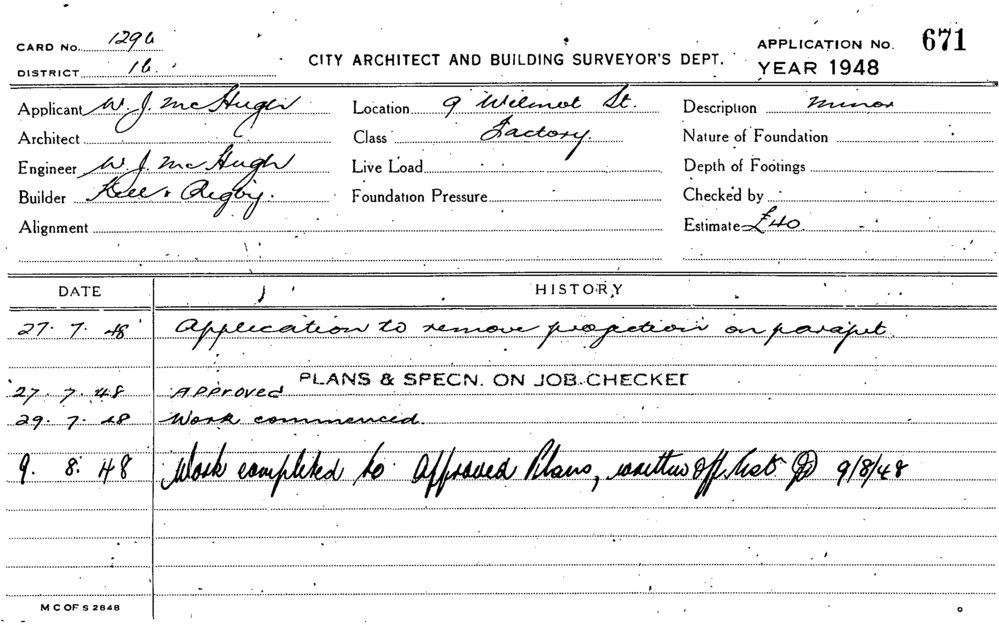 CARD No. 1296
DISTRICT 16.
CITY ARCHITECT AND BUILDING SURVEYOR'S DEPT.
APPLICATION No. 671
YEAR 1948
Applicant W. J. McHugh
Location 9 Wilmot St.
Description minor
Architect
Class Factory.
Nature of Foundation
Engineer W. J. McHugh
Live Load
Depth of Footings
Builder Kell & Rigby.
Foundation Pressure
Checked by
Alignment
Estimate £40
DATE
HISTORY
27. 7. 48 Application to remove projection on parapet.
PLANS & SPECN. ON JOB CHECKED
27. 7. 48 Approved
29. 7. 48 Work commenced.
9. 8. 48 Work completed to Approved Plans, written off list 9/8/48
M C OF S 2848